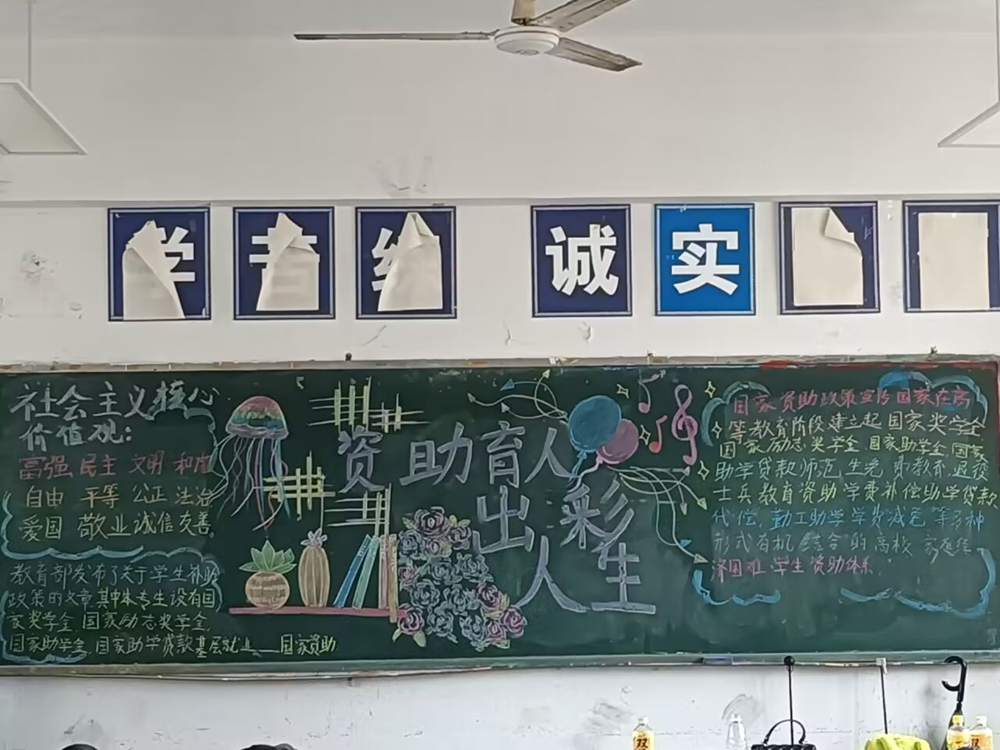 学
诚实
社会主义核心
价值观:
富强 民主 文明 和谐
自由 平等 公正 法治
爱国 敬业 诚信 友善
教育部发布了关于学生补贴
政策的文章其中本专生设有国
家奖学金 国家励志奖学金
国家助学金 国家助学贷款基层就业——国家资助
资助育人
出彩
人生
国家资助政策宣传国家在高
等教育阶段建立起国家奖学金
国家励志奖学金 国家助学金 国家
助学贷款师范生免 退役
士兵教育资助学费补偿助学贷款
代偿、勤工助学学费减免等多种
形式有机结合的高校家庭经
济困难学生资助体系